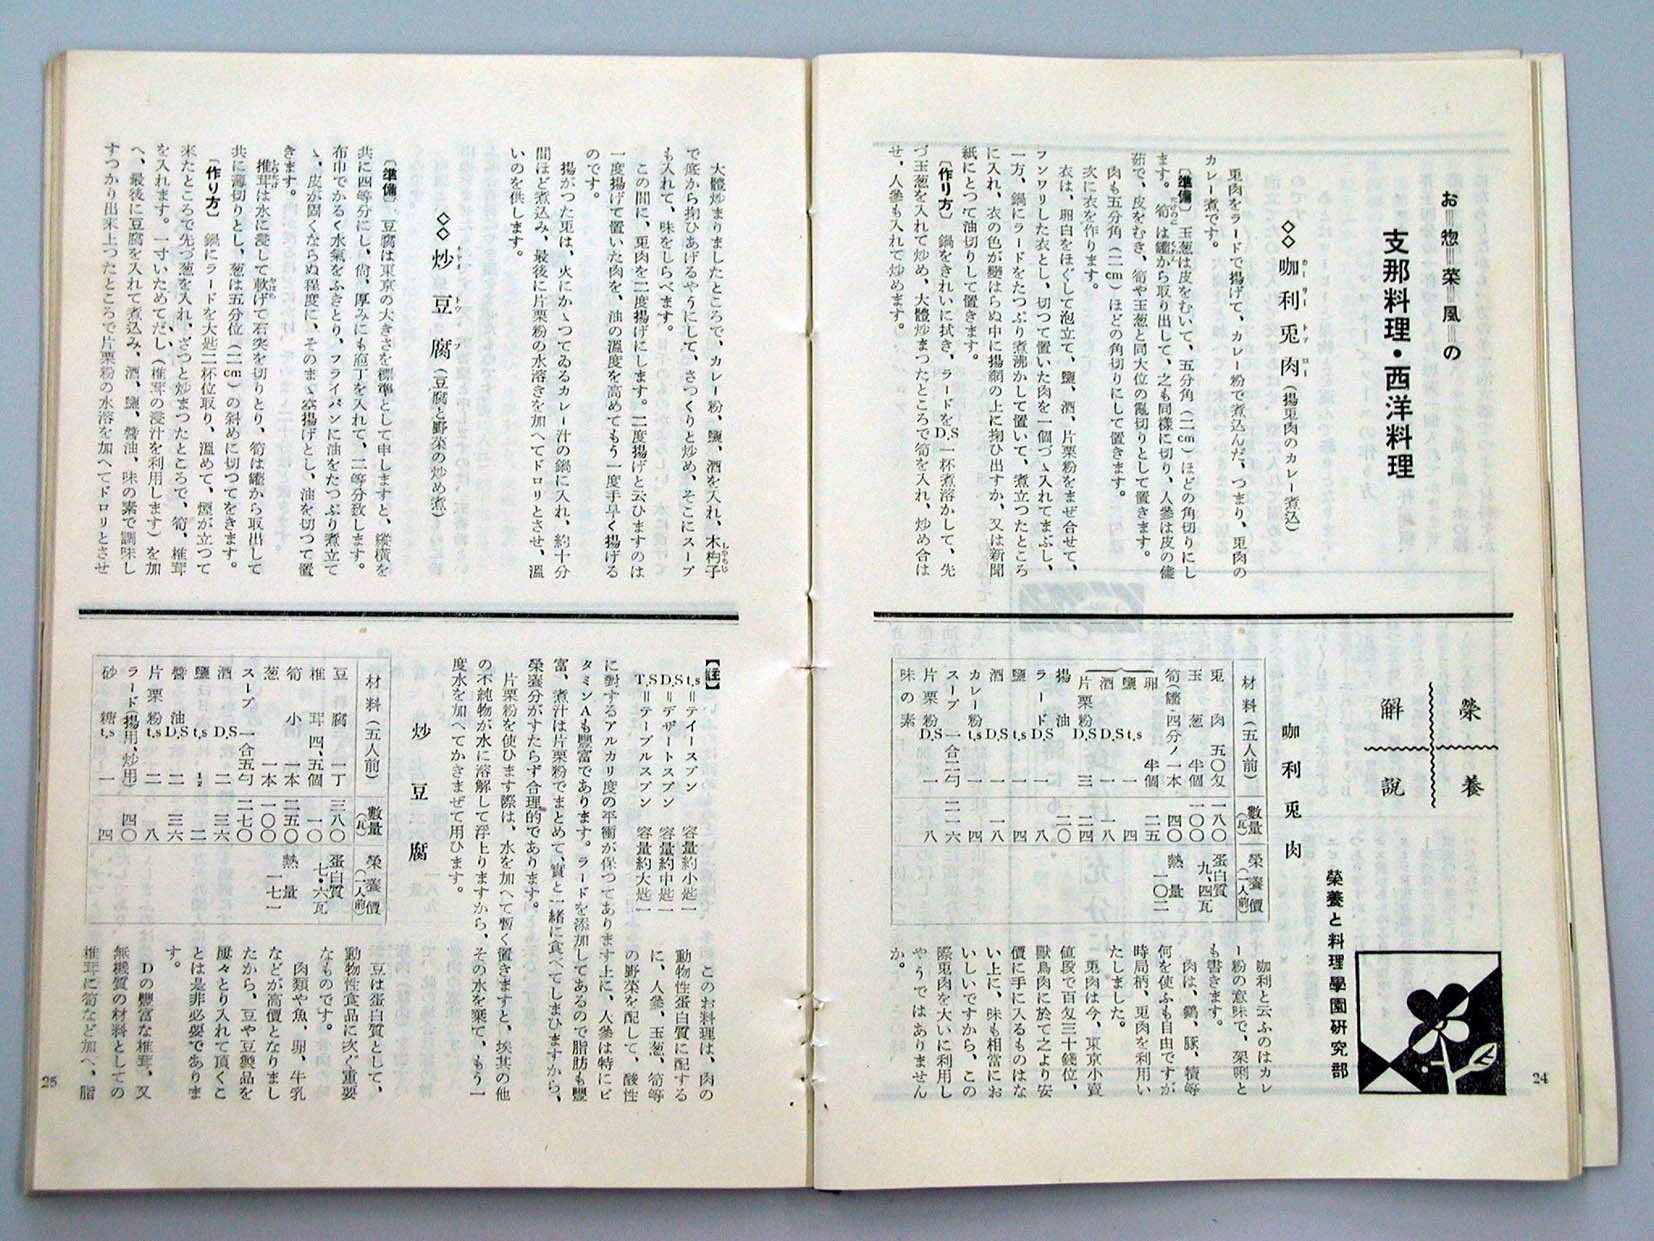 お惣菜風の
支那料理・西洋料理
◇◇咖利兎肉(揚兎肉のカレー煮込)
カーリートブロー
兎肉をラードで揚げて、カレー粉で煮込んだ、つまり、兎肉の
カレー煮です。
〔準備〕 玉葱は皮をむいて、五分角(二cm)ほどの角切りにし
ます。筍は罐から取り出して、之も同様に切り、人參は皮の儘
茹で、皮をむき、筍や玉葱と同大位の亂切りとして置きます。
肉も五分角(二cm)ほどの角切りにして置きます。
次に衣を作ります。
衣は、卵白をほぐして泡立て、鹽、酒、片栗粉をまぜ合せて、
フンワリした衣とし、切つて置いた肉を一個づゝ入れてまぶし、
一方、鍋にラードをたつぷり煮沸かして置いて、煮立つたところ
に入れ、衣の色が變はらぬ中に揚網の上に掬ひ出すか、又は新聞
紙にとつて油切りして置きます。
〔作り方〕 鍋をきれいに拭き、ラードをD.S一杯煮溶かして、先
づ玉葱を入れて炒め、大體炒まつたところで筍を入れ、炒め合は
せ、人參も入れて炒めます。
榮養
解說
榮養と料理學園研究部
咖利兎肉
材料(五人前) 數量(瓦) 榮養價(一人前)
兎肉 五〇匁 一八〇 蛋白質 九、四瓦
玉葱 半個 一〇〇 熱量 一〇二
筍(罐・四分ノ一本) 四〇
卵 半個 二五
鹽 t.s 一 四
酒 D.S 一 一八
片栗粉 D.S 三 二四
揚油 二〇
ラード D.S 一 八
鹽 t.s 一 四
酒 D.S 一 一八
カレー粉 t.s 一 四
スープ 一合二勺 二一六
片栗粉 D.S 一 八
味の素
咖利と云ふのはカレ
ー粉の意味で、架唎と
も書きます。
肉は、鷄、豚、犢等
何を使ふも自由ですが
時局柄、兎肉を利用い
たしました。
兎肉は今、東京小賣
値段で百匁三十錢位、
獸鳥肉に於て之より安
價に手に入るものはな
い上に、味も相當にお
いしいですから、この
際兎肉を大いに利用し
やうではありません
か。
24
大體炒まりましたところで、カレー粉、鹽、酒を入れ、木杓子
しやもじ
で底から掬ひあげるやうにして、さつくりと炒め、そこにスープ
も入れて、味をしらべます。
この間に、兎肉を二度揚げにします。二度揚げと云ひますのは
一度揚げて置いた肉を、油の溫度を高めてもう一度手早く揚げる
のです。
揚がつた兎は、火にかゝつてゐるカレー汁の鍋に入れ、約十分
間ほど煮込み、最後に片栗粉の水溶きを加へてドロリとさせ、溫
いのを供します。
◇◇炒豆腐(豆腐と野菜の炒め煮)
〔準備〕 豆腐は東京の大きさを標準として申しますと、縱橫を
共に四等分にし、尙、厚みにも庖丁を入れて、二等分致します。
布巾でかるく水氣をふきとり、フライパンに油をたつぷり煮立て
ゝ、皮が固くならぬ程度に、そのまゝ空揚げとし、油を切つて置
きます。
椎茸は水に浸して軟げて石突を切りとり、筍は罐から取出して
共に薄切りとし、葱は五分位(二cm)の斜めに切つてをきます。
〔作り方〕 鍋にラードを大匙二杯位取り、溫めて、煙が立つて
來たところで先づ葱を入れ、ざつと炒まつたところで、筍、椎茸
を入れます。一寸いためてだし(椎茸の浸汁を利用します)を加
へ、最後に豆腐を入れて煮込み、酒、鹽、醬油、味の素で調味し
すつかり出來上つたところで片栗粉の水溶を加へてドロリとさせ
【註】
t.s=テイースプン 容量約小匙一
D.S=デザートスプン 容量約中匙一
T.S=テーブルスプン 容量約大匙一
このお料理は、肉の
動物性蛋白質に配する
に、人參、玉葱、筍等
の野菜を配して、酸性
に對するアルカリ度の平衡が保つてあります上に、人參は特にビ
タミンAも豐富であります。ラードを添加してあるので脂肪も豐
富、煮汁は片栗粉でまとめて、實と一緖に食べてしまひますから、
榮養分がすたらず合理的であります。
片栗粉を使ひます際は、水を加へて暫く置きますと、埃其の他
の不純物が水に溶解して浮上りますから、その水を棄て、もう一
度水を加へてかきまぜて用ひます。
炒豆腐
材料(五人前) 數量(瓦) 榮養價(一人前)
豆腐 一丁 三八〇 蛋白質 七・六瓦
椎茸 四、五個 一〇 熱量 一七一
筍 小 一本 二五〇
葱 一本 一〇〇
スープ 一合五勺 二七〇
酒 D.S 二 三六
鹽 t.s ½ 二
醬油 D.S 二 三六
片栗粉 t.s 二 八
ラード(揚用、炒用) 四〇
砂糖 t.s 一 四
豆は蛋白質として、
動物性食品に次ぐ重要
なものです。
肉類や魚、卵、牛乳
などが高價となりまし
たから、豆や豆製品を
屢々とり入れて頂くこ
とは是非必要でありま
す。
Dの豐富な椎茸、又
無機質の材料としての
椎茸に筍など加へ、脂
25